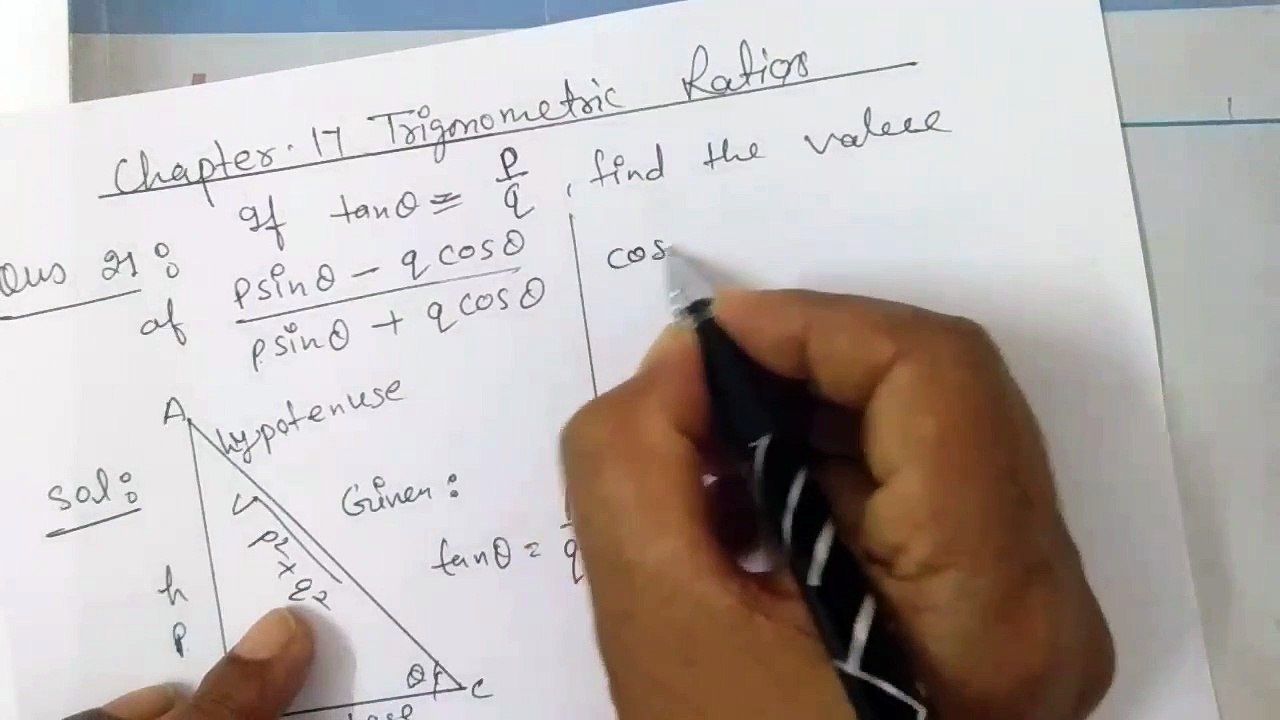 Chapter. 17 Trigonometric Ratios
Ques 21: If tanθ = p/q, find the value
of psinθ - q cosθ / psinθ + q cosθ
cos
A
hypotenuse
Sol:
Given:
tanθ =
h
p
θ
C